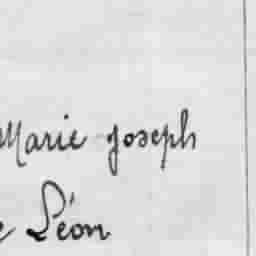 Marie Joseph
Léon